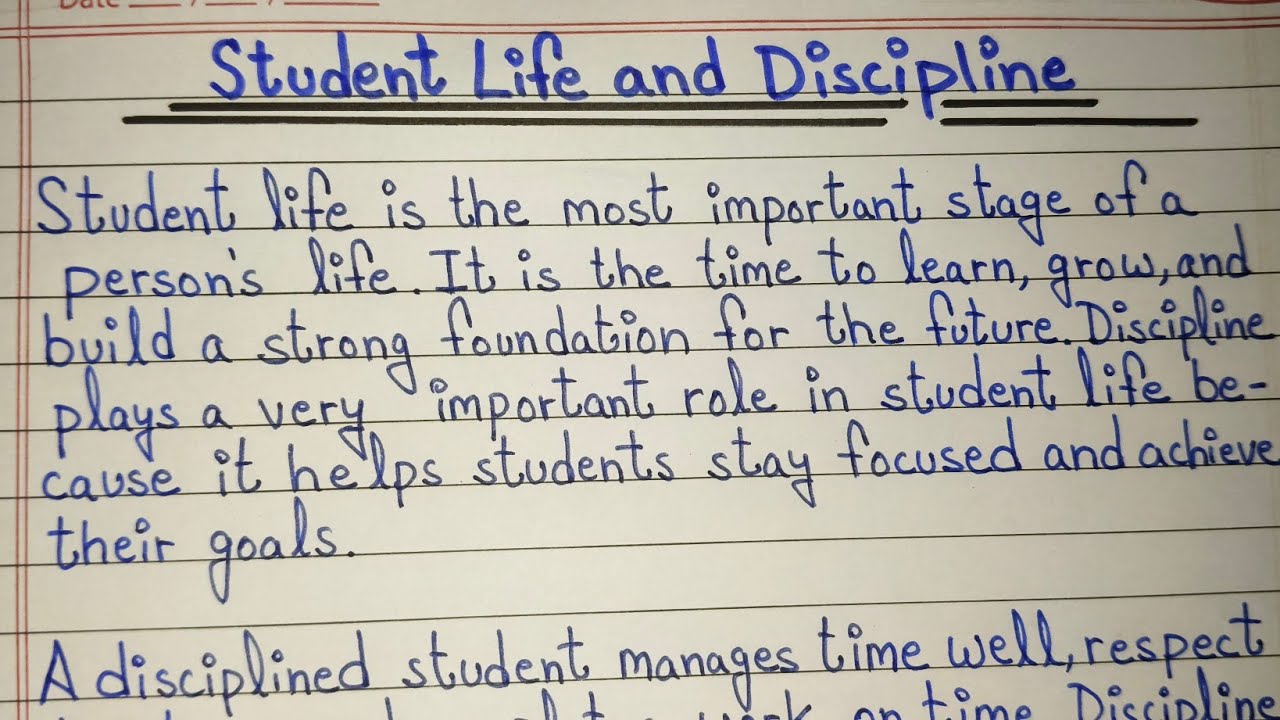 Date
Student Life and Discipline
Student life is the most important stage of a
person's life. It is the time to learn, grow, and
build a strong foundation for the future. Discipline
plays a very important role in student life be-
cause it helps students stay focused and achieve
their goals.
A disciplined student manages time well, respect
on time. Discipline